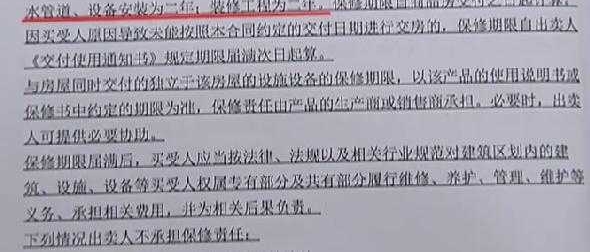 水管道、设备安装为二年；装修工程为二年。保修期限自
因买受人原因导致未能按照本合同约定的交付日期进行交房的，保修期限自出卖人
《交付使用通知书》规定期限届满次日起算。
与房屋同时交付的独立于该房屋的设施设备的保修期限，以该产品的使用说明书或
保修书中约定的期限为准，保修责任由产品的生产商或销售商承担。必要时，出卖
人可提供必要协助。
保修期限届满后，买受人应当按法律、法规以及相关行业规范对建筑区划内的建
筑、设施、设备等买受人权属专有部分及共有部分履行维修、养护、管理、维护等
义务、承担相关费用，并为相关后果负责。
下列情况出卖人不承担保修责任：